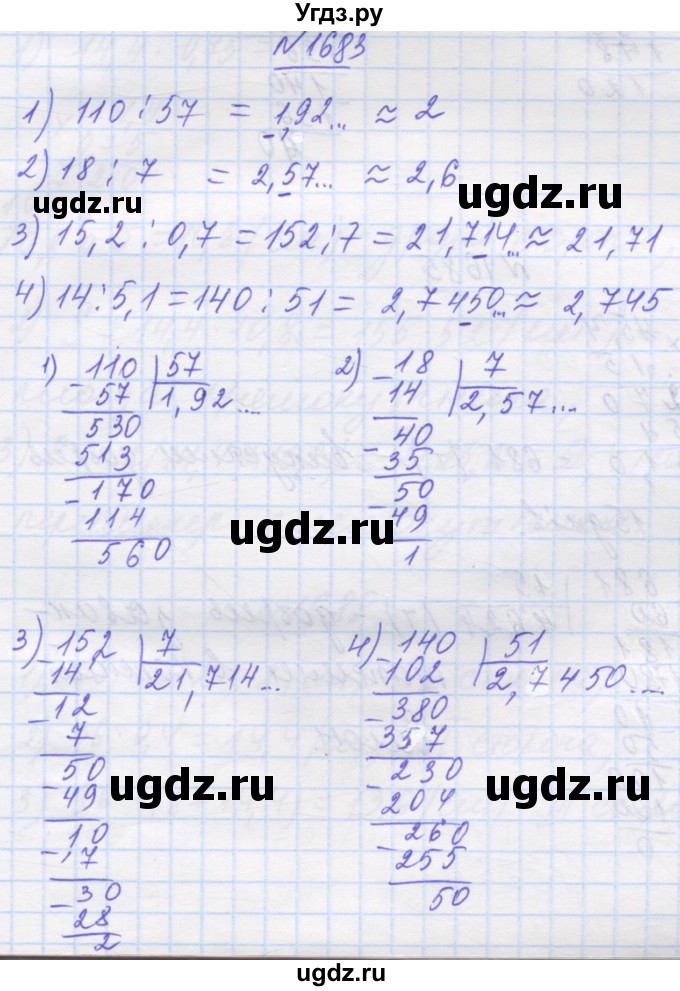 Угдз.ру
N 1683
1) 110 : 57 = 1,92... ≈ 2
2) 18 : 7 = 2,57... ≈ 2,6
ugdz.ru ugdz.ru
3) 15,2 : 0,7 = 152 : 7 = 21,714... ≈ 21,71
4) 14 : 5,1 = 140 : 51 = 2,7450... ≈ 2,745
1) - 110 | 57
57 1,92...
530
513
- 170
114
560
2) - 18 | 7
14 2,57...
- 40
35
- 50
49
1
ugdz.ru ugdz.ru
3) - 152 | 7
14 21,714...
- 12
7
- 50
49
- 10
7
- 30
28
2
4) - 140 | 51
102 2,7450...
- 380
357
- 230
204
- 260
255
50
ugdz.ru ugdz.ru
ugdz.ru
ugdz.ru